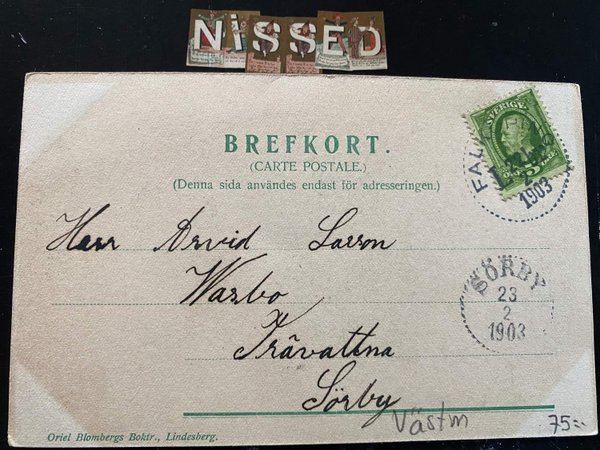 NiSSED
BREFKORT.
(CARTE POSTALE.)
(Denna sida användes endast för adresseringen.)
SVERIGE
FAL
1903
Herr Arvid Larson
Warbo
Trävattna
Sörby
SÖRBY
23
2
1903
Västm
75:-
Oriel Blombergs Boktr., Lindesberg.